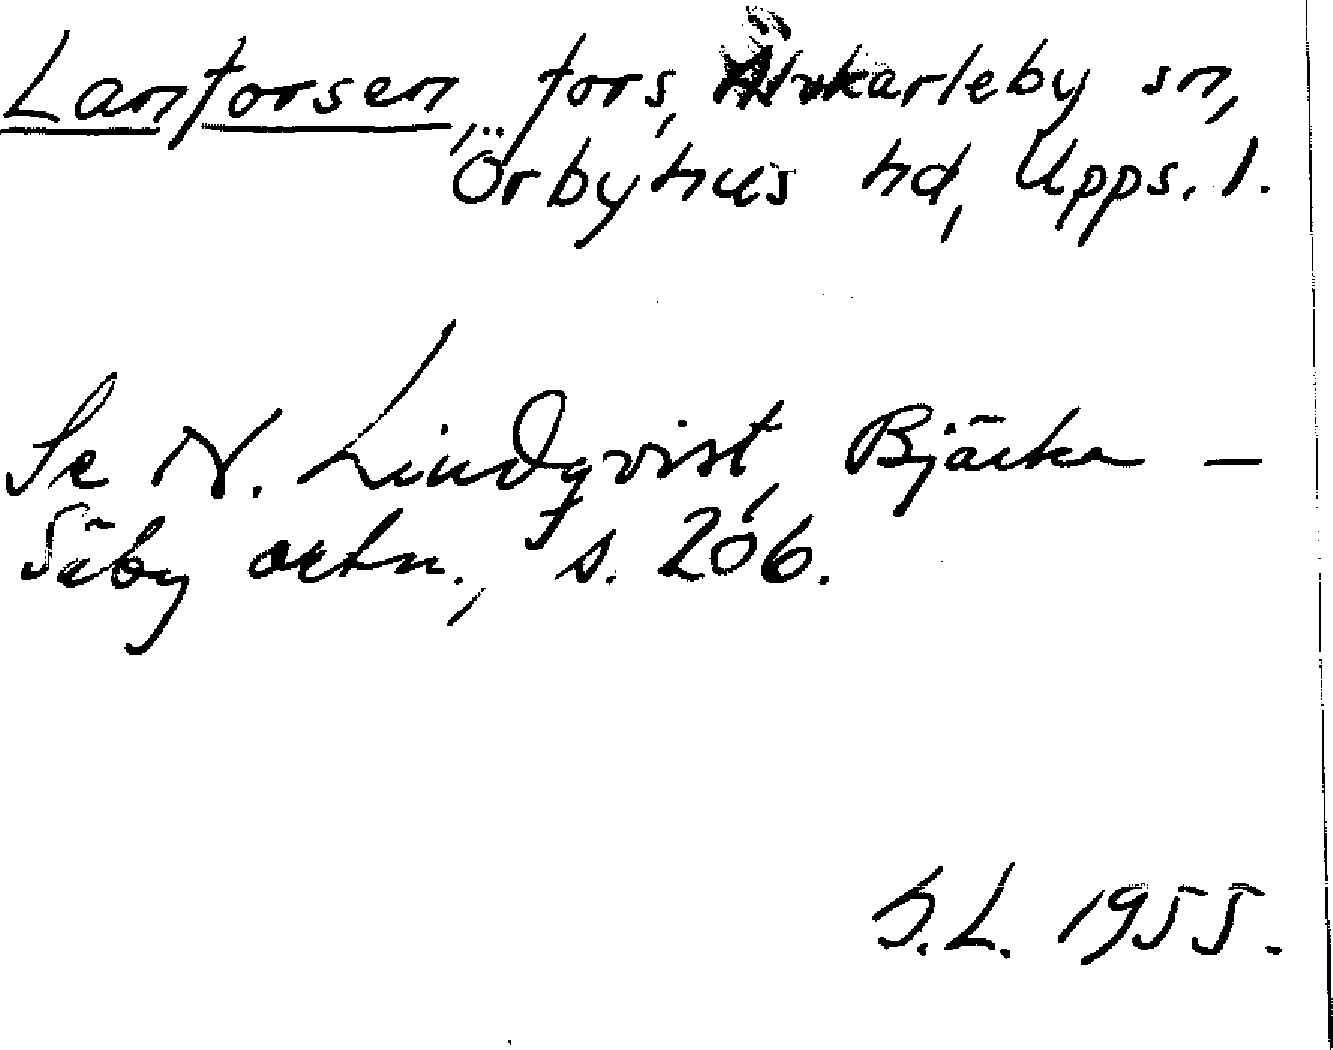 Lanforsen, fors, Älvkarleby sn,
Örbyhus hd, Upps. l.
Se N. Lindqvist, Bjärka –
Säby ortn., s. 206.
S.L. 1955.